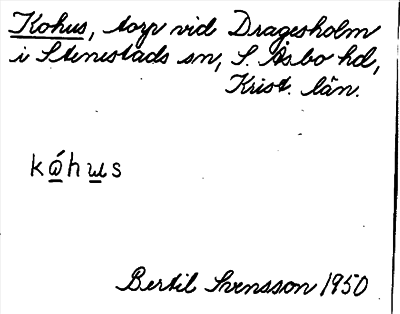 Kohus, torp vid Dragesholm
i Stenestads sn, S. Åsbo hd,
Krist. län.
kώhus
Bertil Svensson 1950